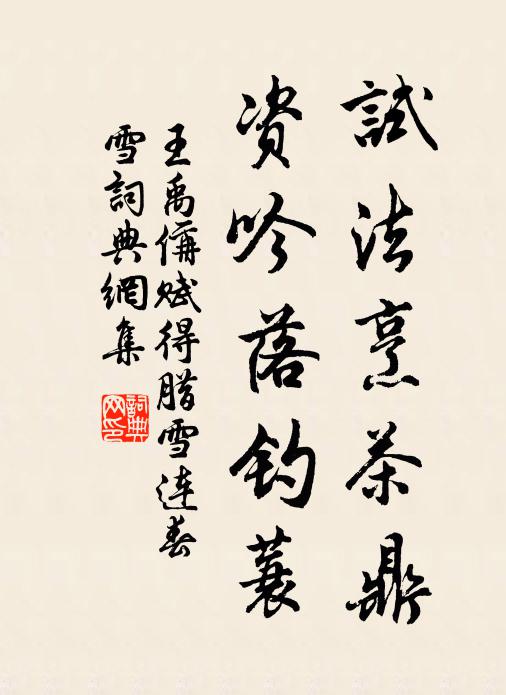 試法烹茶鼎
資吟落釣蓑
王禹偁賦得腊雪連春
雪詞典網集
詞典网印